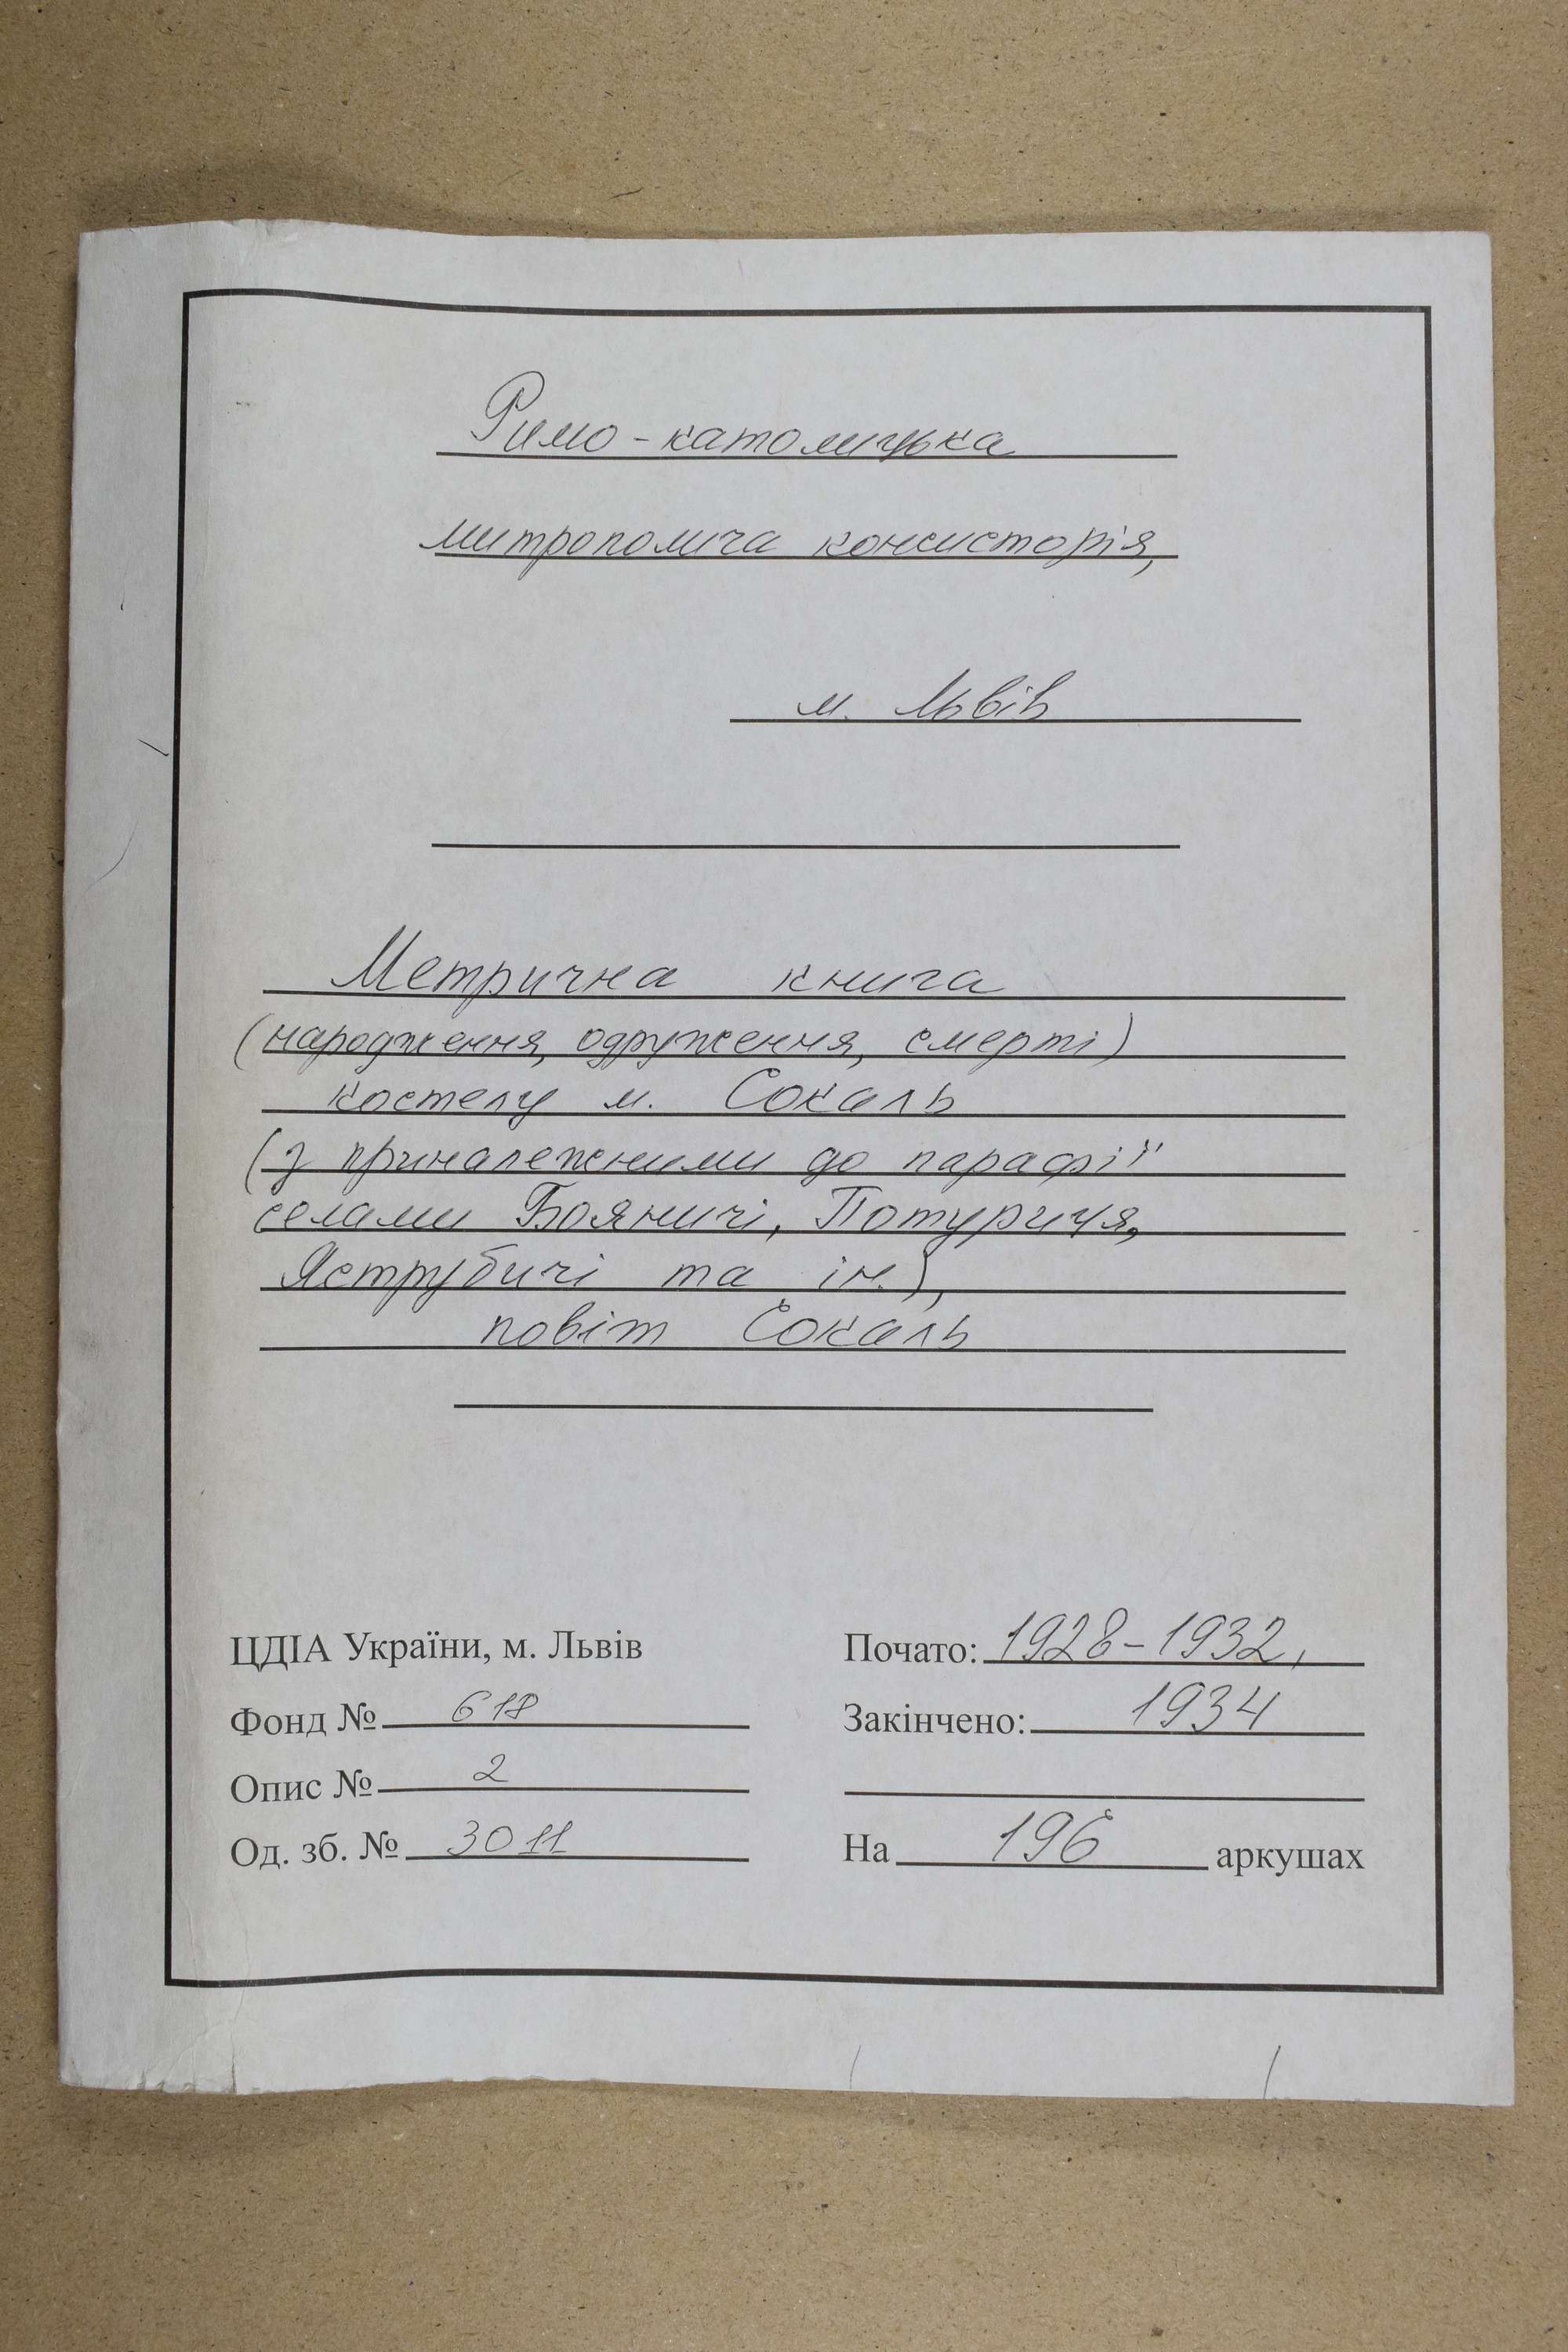 Римо-католицька
митрополича консисторія,
м. Львів
Метрична книга
(народження, одруження, смерті)
костелу м. Сокаль
(з приналежними до парафії
селами Бояничі, Потуриця,
Яструбичі та ін.),
повіт Сокаль
ЦДІА України, м. Львів
Почато: 1928-1932,
Фонд № 618
Закінчено: 1934
Опис № 2
Од. зб. № 3011
На 196 аркушах